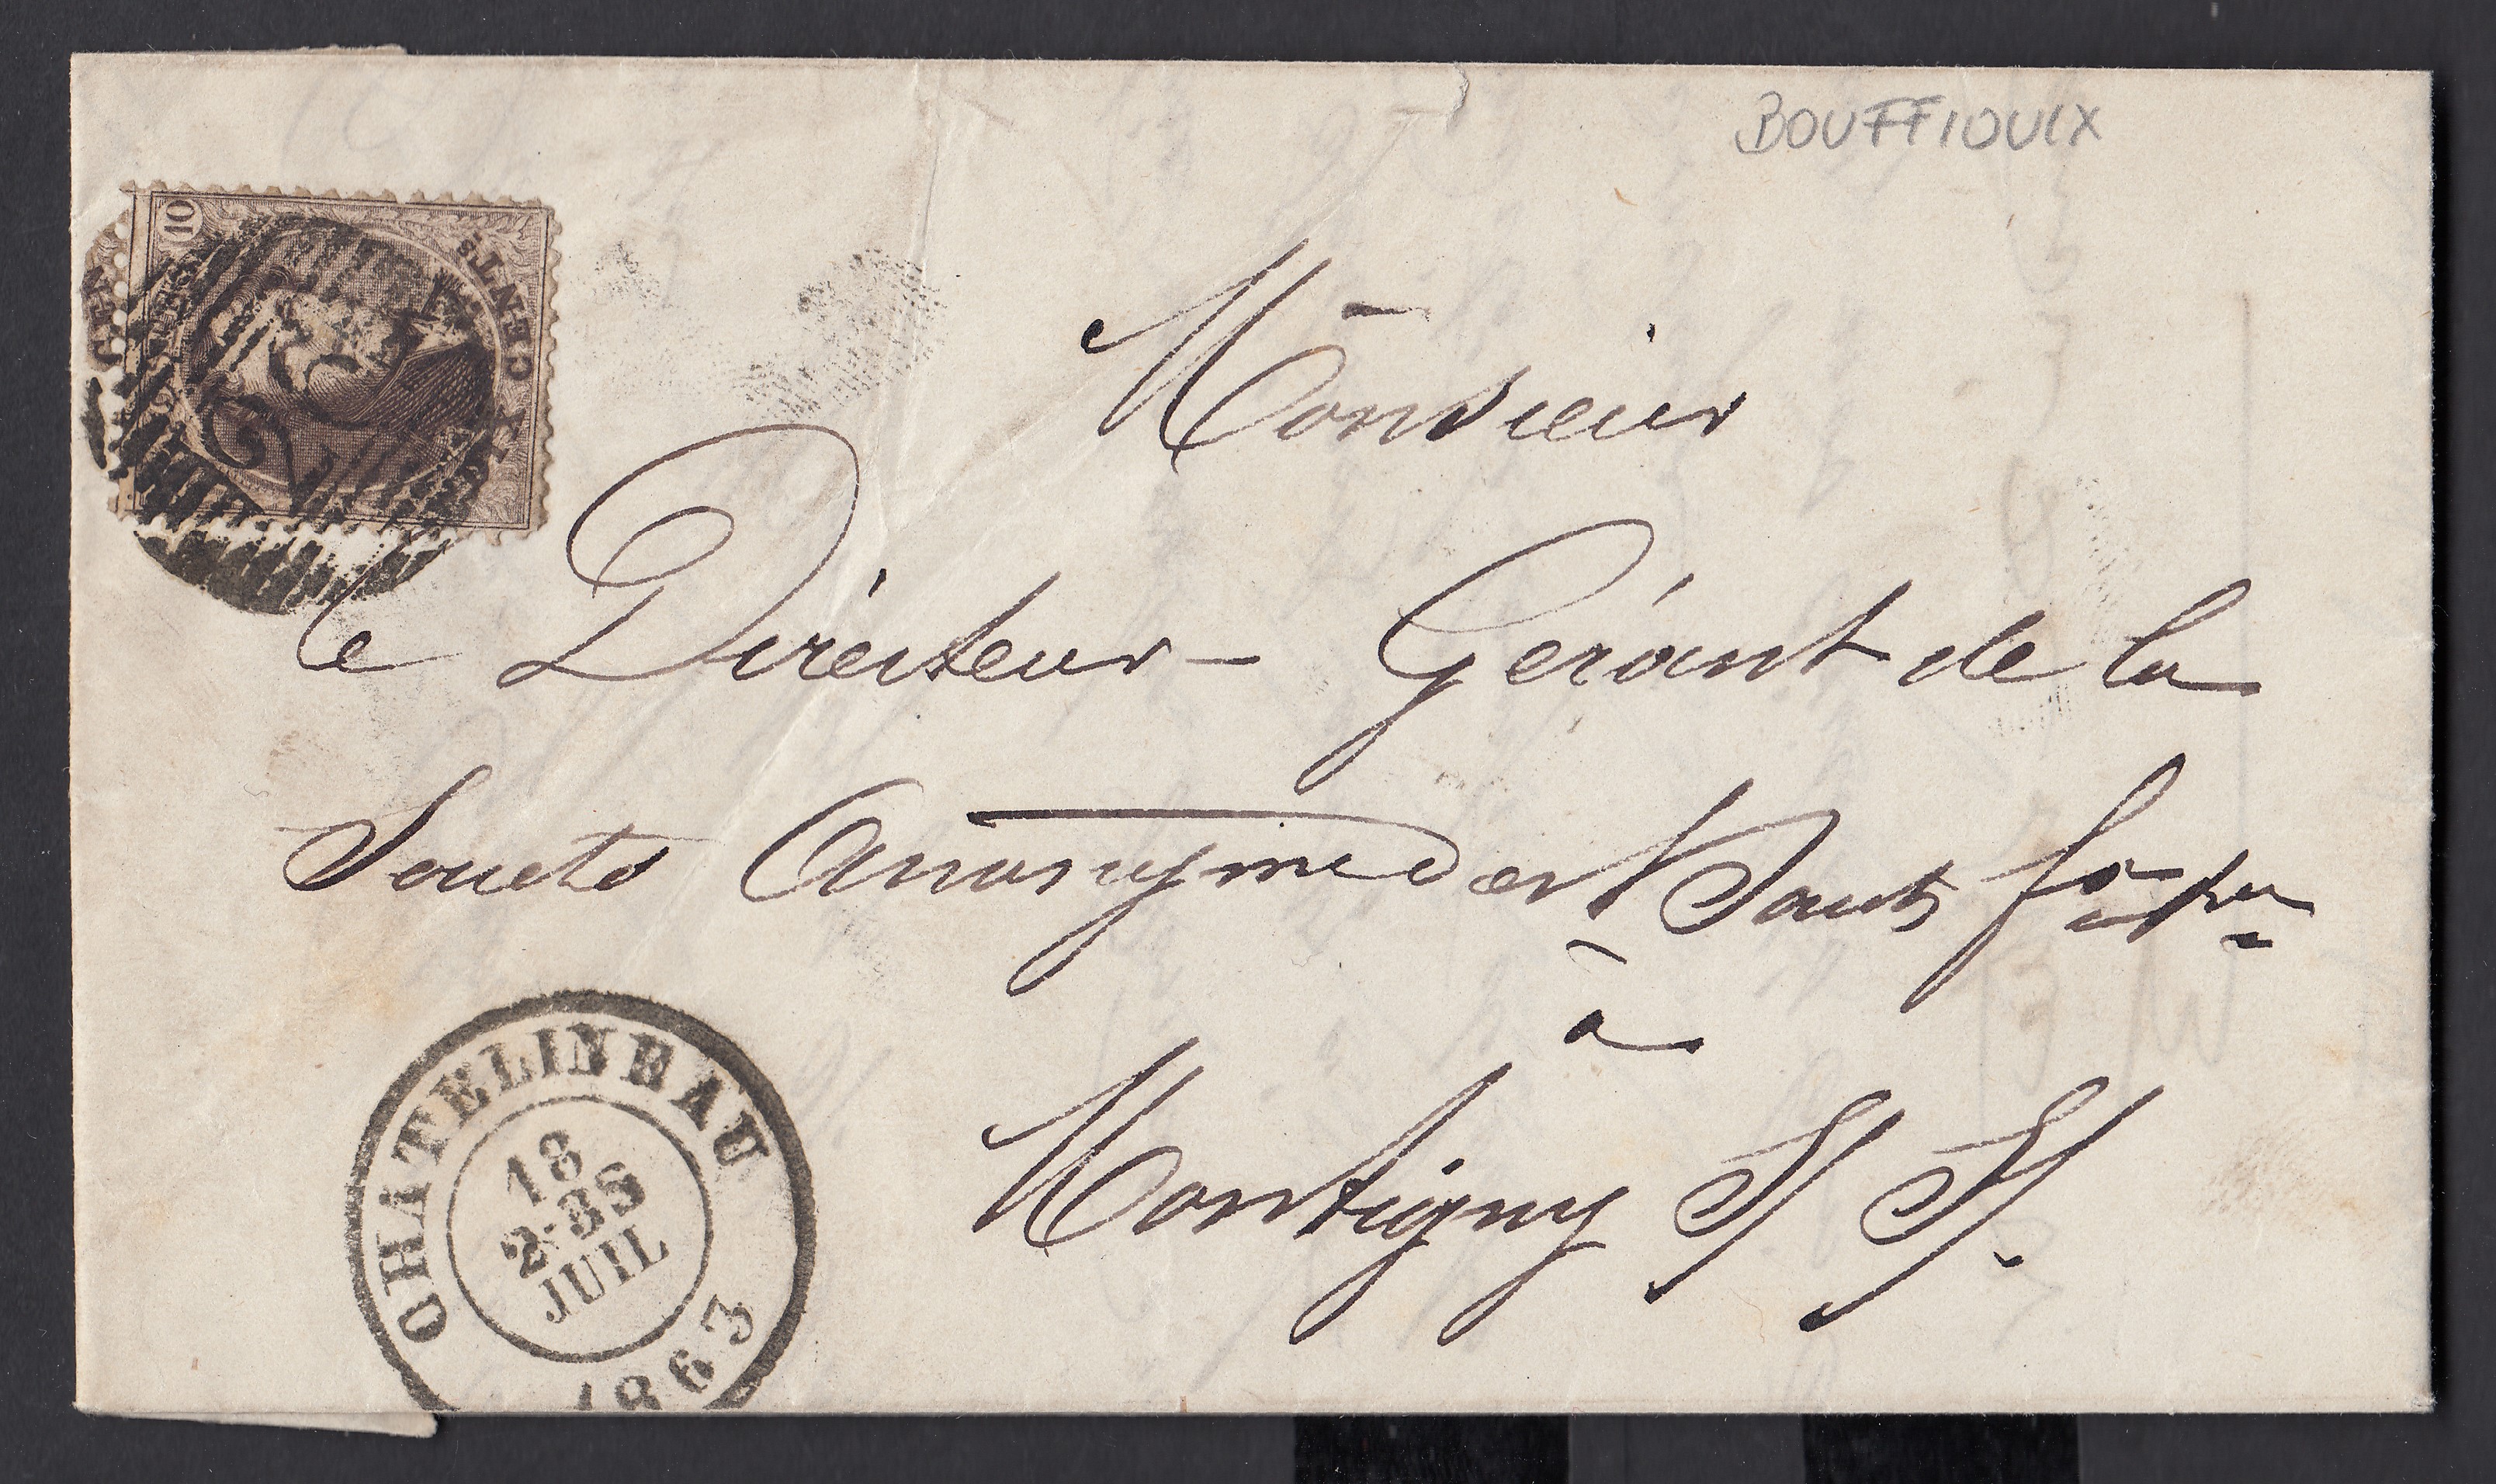 BOUFFIOULX
10
X CENTS
Monsieur
le Directeur - Gérant de la
Société Anonyme des Hauts
à
Montigny S/ S/.
CHATELINEAU
18
2-3S
JUIL
1863